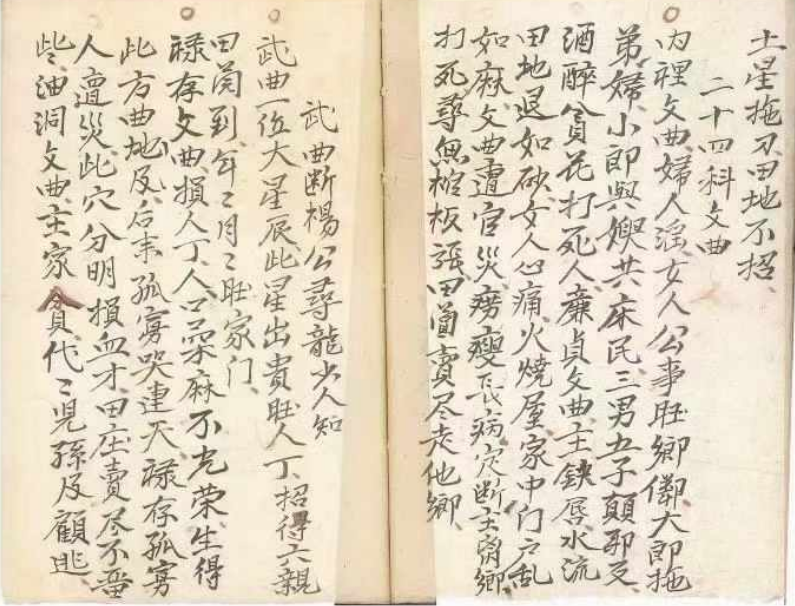 土星拖刀田地不招
二十四科文曲
内裡文曲婦人淫女人公事旺鄉 大郎拖
弟婦小郎與嫂共床民三男五子顛邪文
酒醉貪花打死人廉貞文曲主缺唇水流
田地退如砂女人心痛火燒屋家中门户乱
如麻文曲遭官災癆瘦長病定断主离鄉
打死尋無棺板 田園賣尽走他鄉
武曲断楊公尋龍少人知
武曲一位大星辰此星出貴旺人丁招得六親
田箇到年々月々旺家门
禄存文曲損人丁人口 麻不光荣生得
此方曲地及后末孤寡哭連天禄存孤寡
人遭災此穴分明損血才田庄賣尽不留
些油洞文曲主家貧代々児孫及顧逃